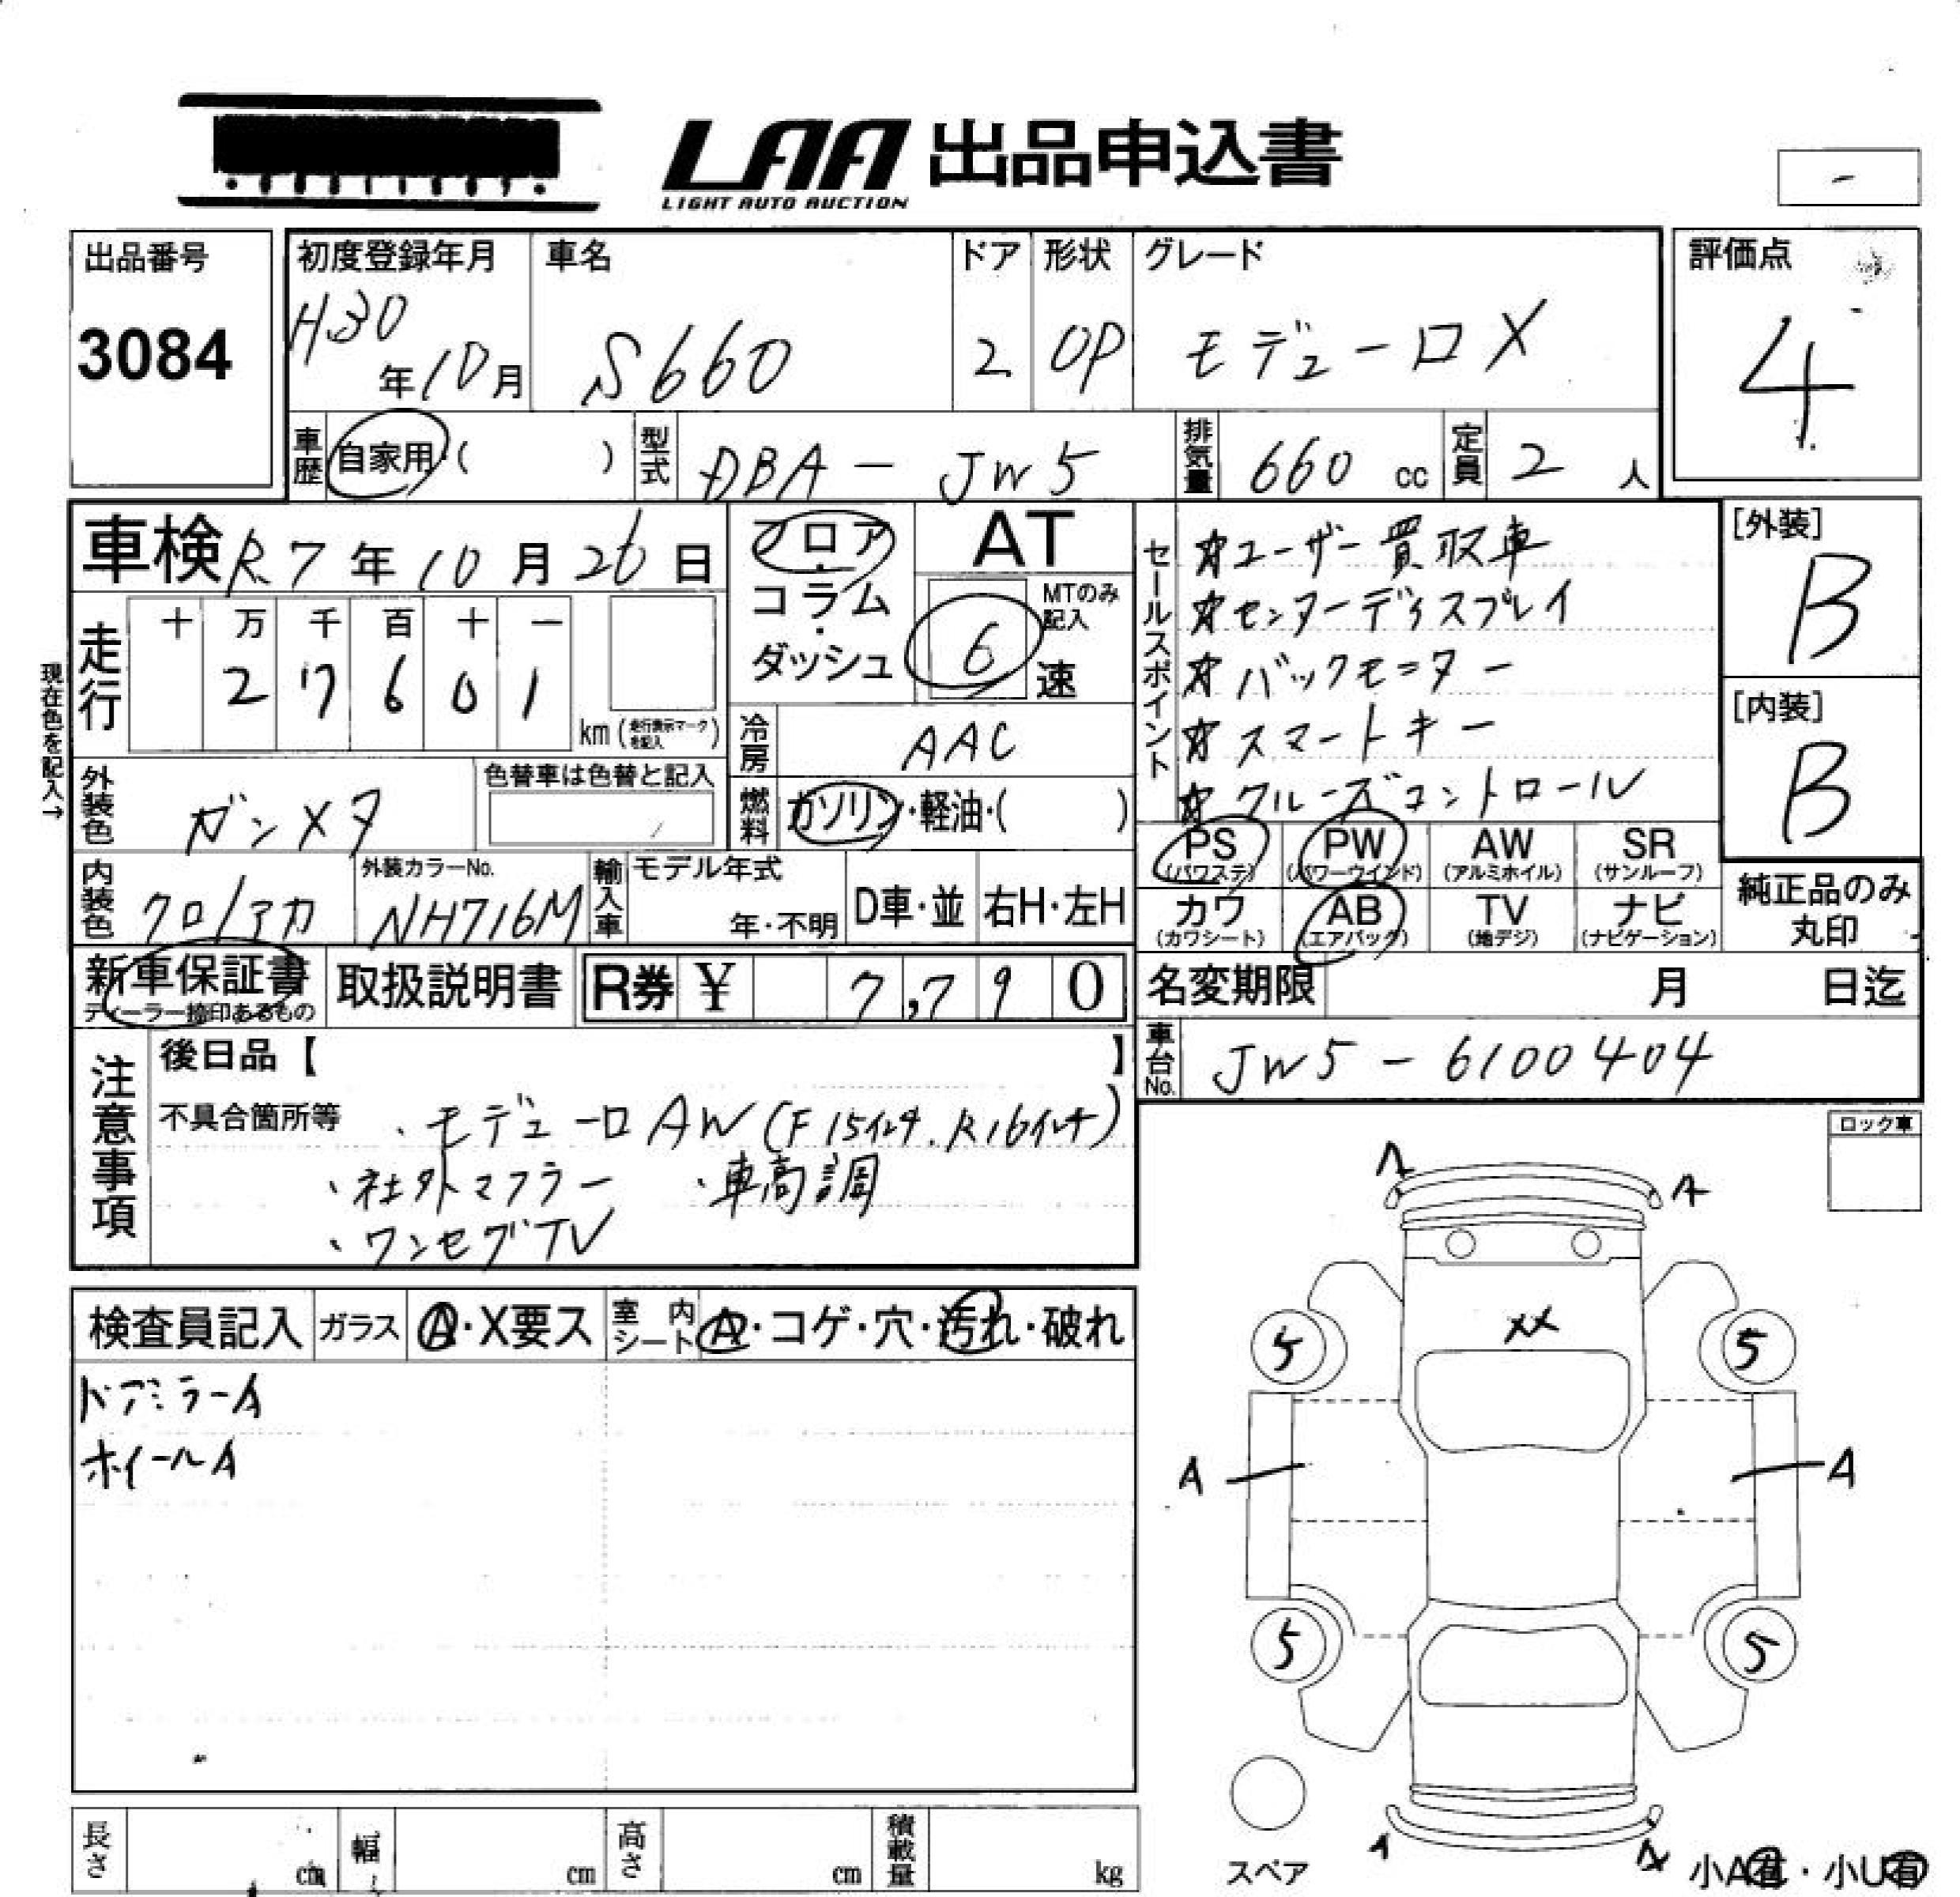 LAA 出品申込書
LIGHT AUTO AUCTION
-
出品番号
3084
初度登録年月
H30年10月
車名
S660
ドア
2
形状
OP
グレード
モデューロX
評価点
4
車歴 自家用・( )
型式 DBA-JW5
排気量 660 cc
定員 2 人
車検 R7年10月26日
フロア・コラム・ダッシュ
AT
MTのみ記入
6速
セールスポイント
☆ユーザー買取車
☆センターディスプレイ
☆バックモニター
☆スマートキー
☆クルーズコントロール
[外装]
B
[内装]
B
現在色を記入→
走行
十 万 千 百 十 一
2 7 6 0 1
km(走行表示マークを記入)
冷房 AAC
外装色 ガンメタ
色替車は色替と記入
燃料 ガソリン・軽油・( )
PS (パワステ)
PW (パワーウインド)
AW (アルミホイル)
SR (サンルーフ)
内装色 クロ/アカ
外装カラーNo.
NH716M
輸入車
モデル年式
年・不明
D車・並
右H・左H
カワ (カワシート)
AB (エアバック)
TV (地デジ)
ナビ (ナビゲーション)
純正品のみ丸印
新車保証書
ディーラー捺印あるもの
取扱説明書
R券 ¥ 7,790
名変期限 月 日迄
車台No. JW5-6100404
注意事項
後日品【 】
不具合箇所等 ・モデューロAW(F15インチ.R16インチ)
・社外マフラー ・車高調
・ワンセグTV
ロック車
検査員記入
ガラス A・X要ス
室内シート A・コゲ・穴・汚れ・破れ
ドアミラーA
ホイールA
A A
XX
5 5
A A
5 5
A A
スペア
小A有・小U有
長さ cm
幅 cm
高さ cm
積載量 kg